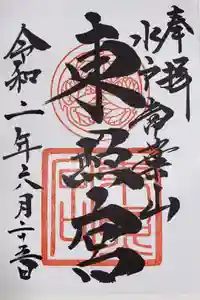 奉拝
水戸常葉山
東照宮
令和二年八月二十五日